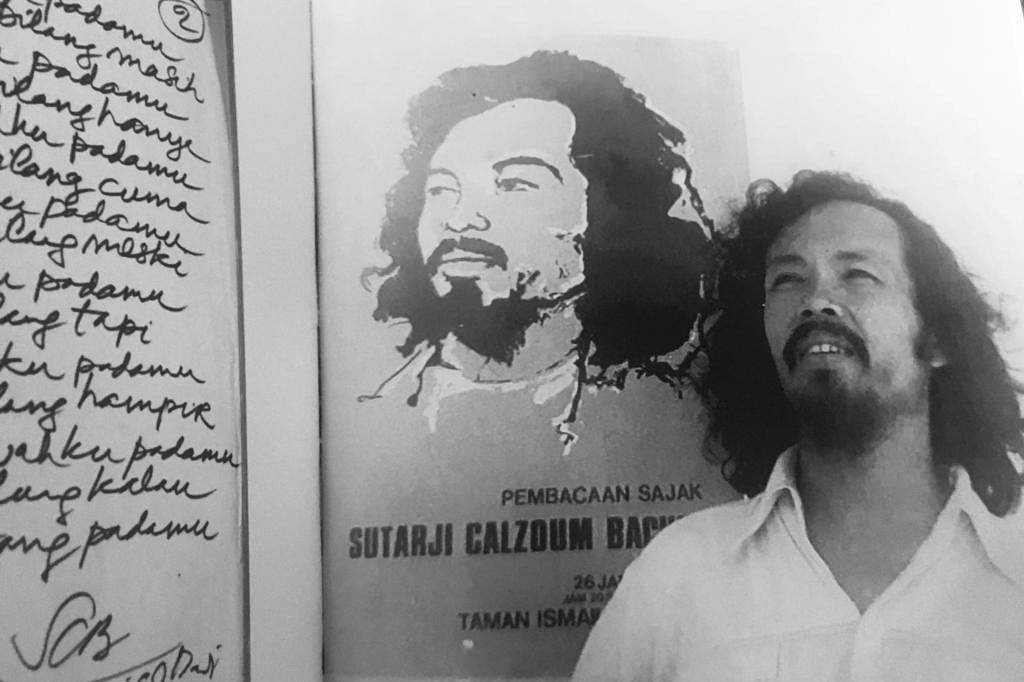 2
padamu
bilang masih
padamu
ilang hanya
ku padamu
ilang cuma
padamu
lang meski
u padamu
lang tapi
ku padamu
lang hampir
wahku padamu
lang kalau
ang padamu
SCB
PEMBACAAN SAJAK
SUTARJI CALZOUM BACH
26 JA
JAM 20
TAMAN ISMAI